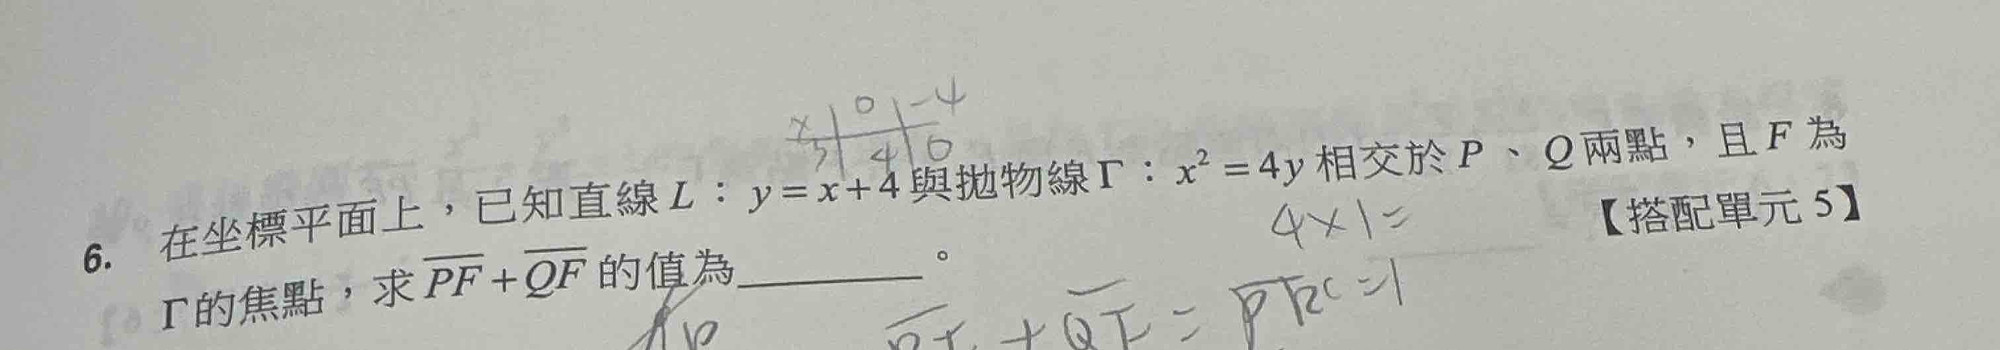 x 0 -4
y 4 0
6. 在坐標平面上,已知直線 L:y=x+4 與拋物線 Γ:x²=4y 相交於 P、Q 兩點,且 F 為
4×1=
Γ 的焦點,求 PF+QF 的值為________。 【搭配單元 5】
+QF=
=1